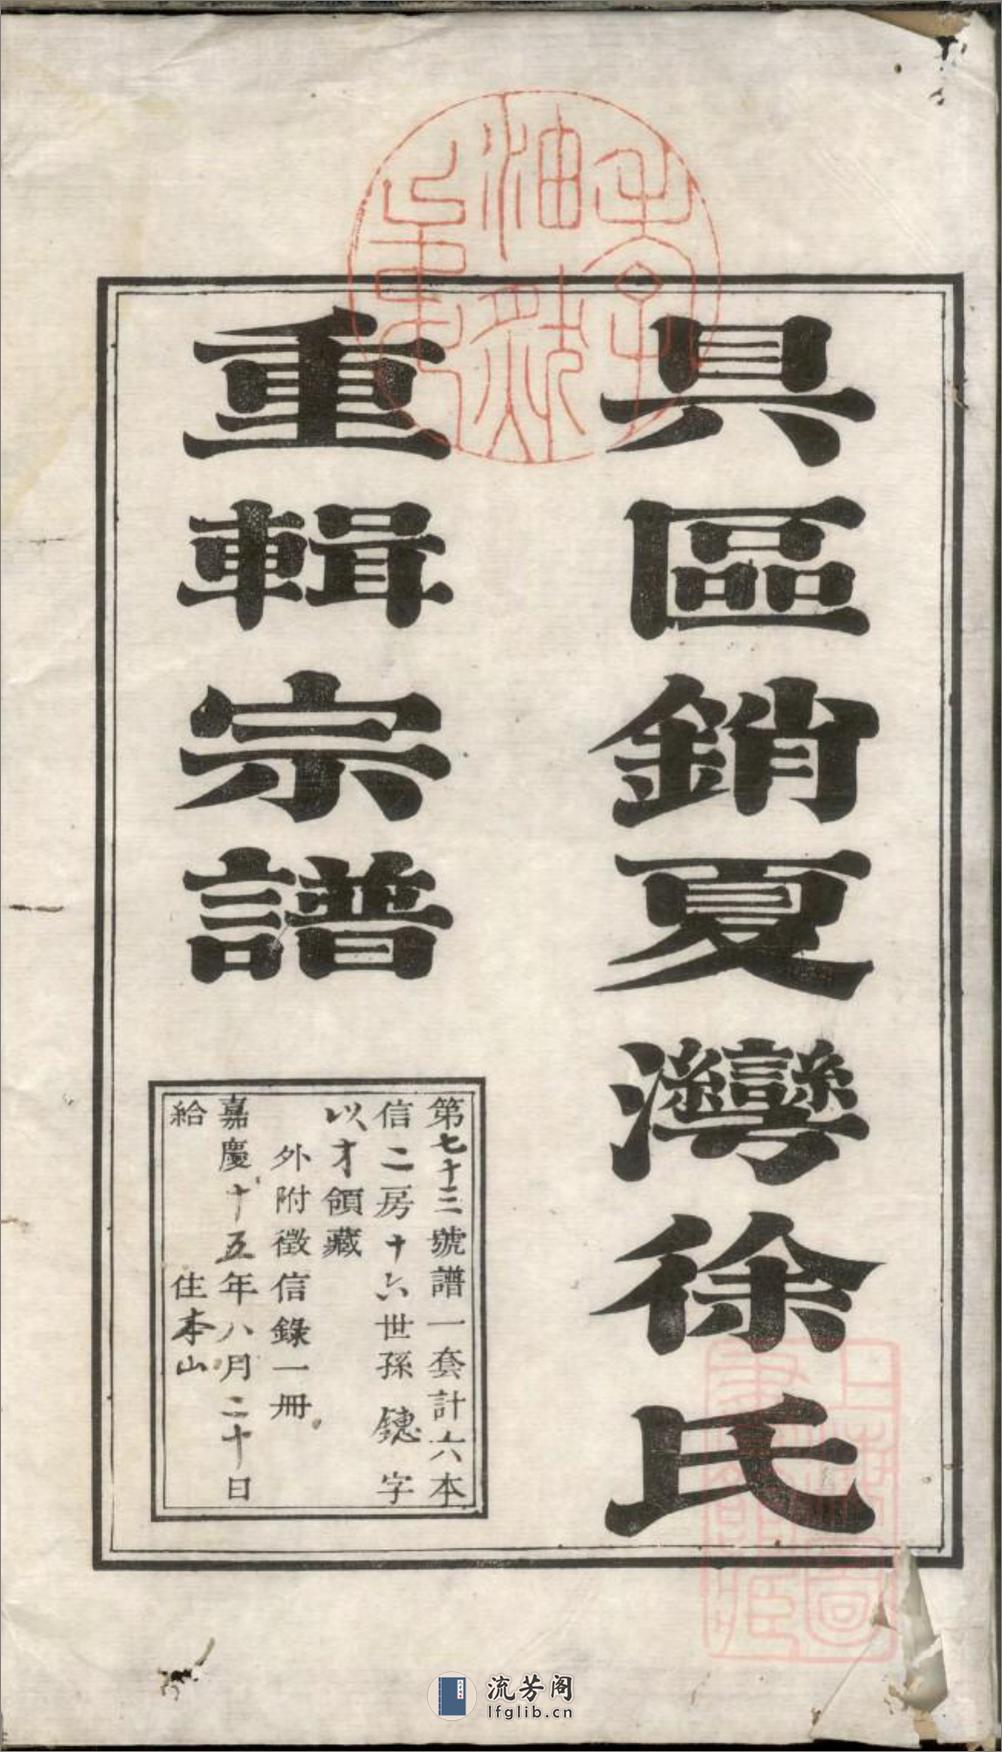 具區銷夏灣徐氏
重輯宗譜
第七十三號譜一套計六本
信二房十六世孫鏸字
以才領藏
外附徵信錄一冊
嘉慶十五年八月二十日
給 住本山
上海圖書館藏
流芳阁
lfglib.cn